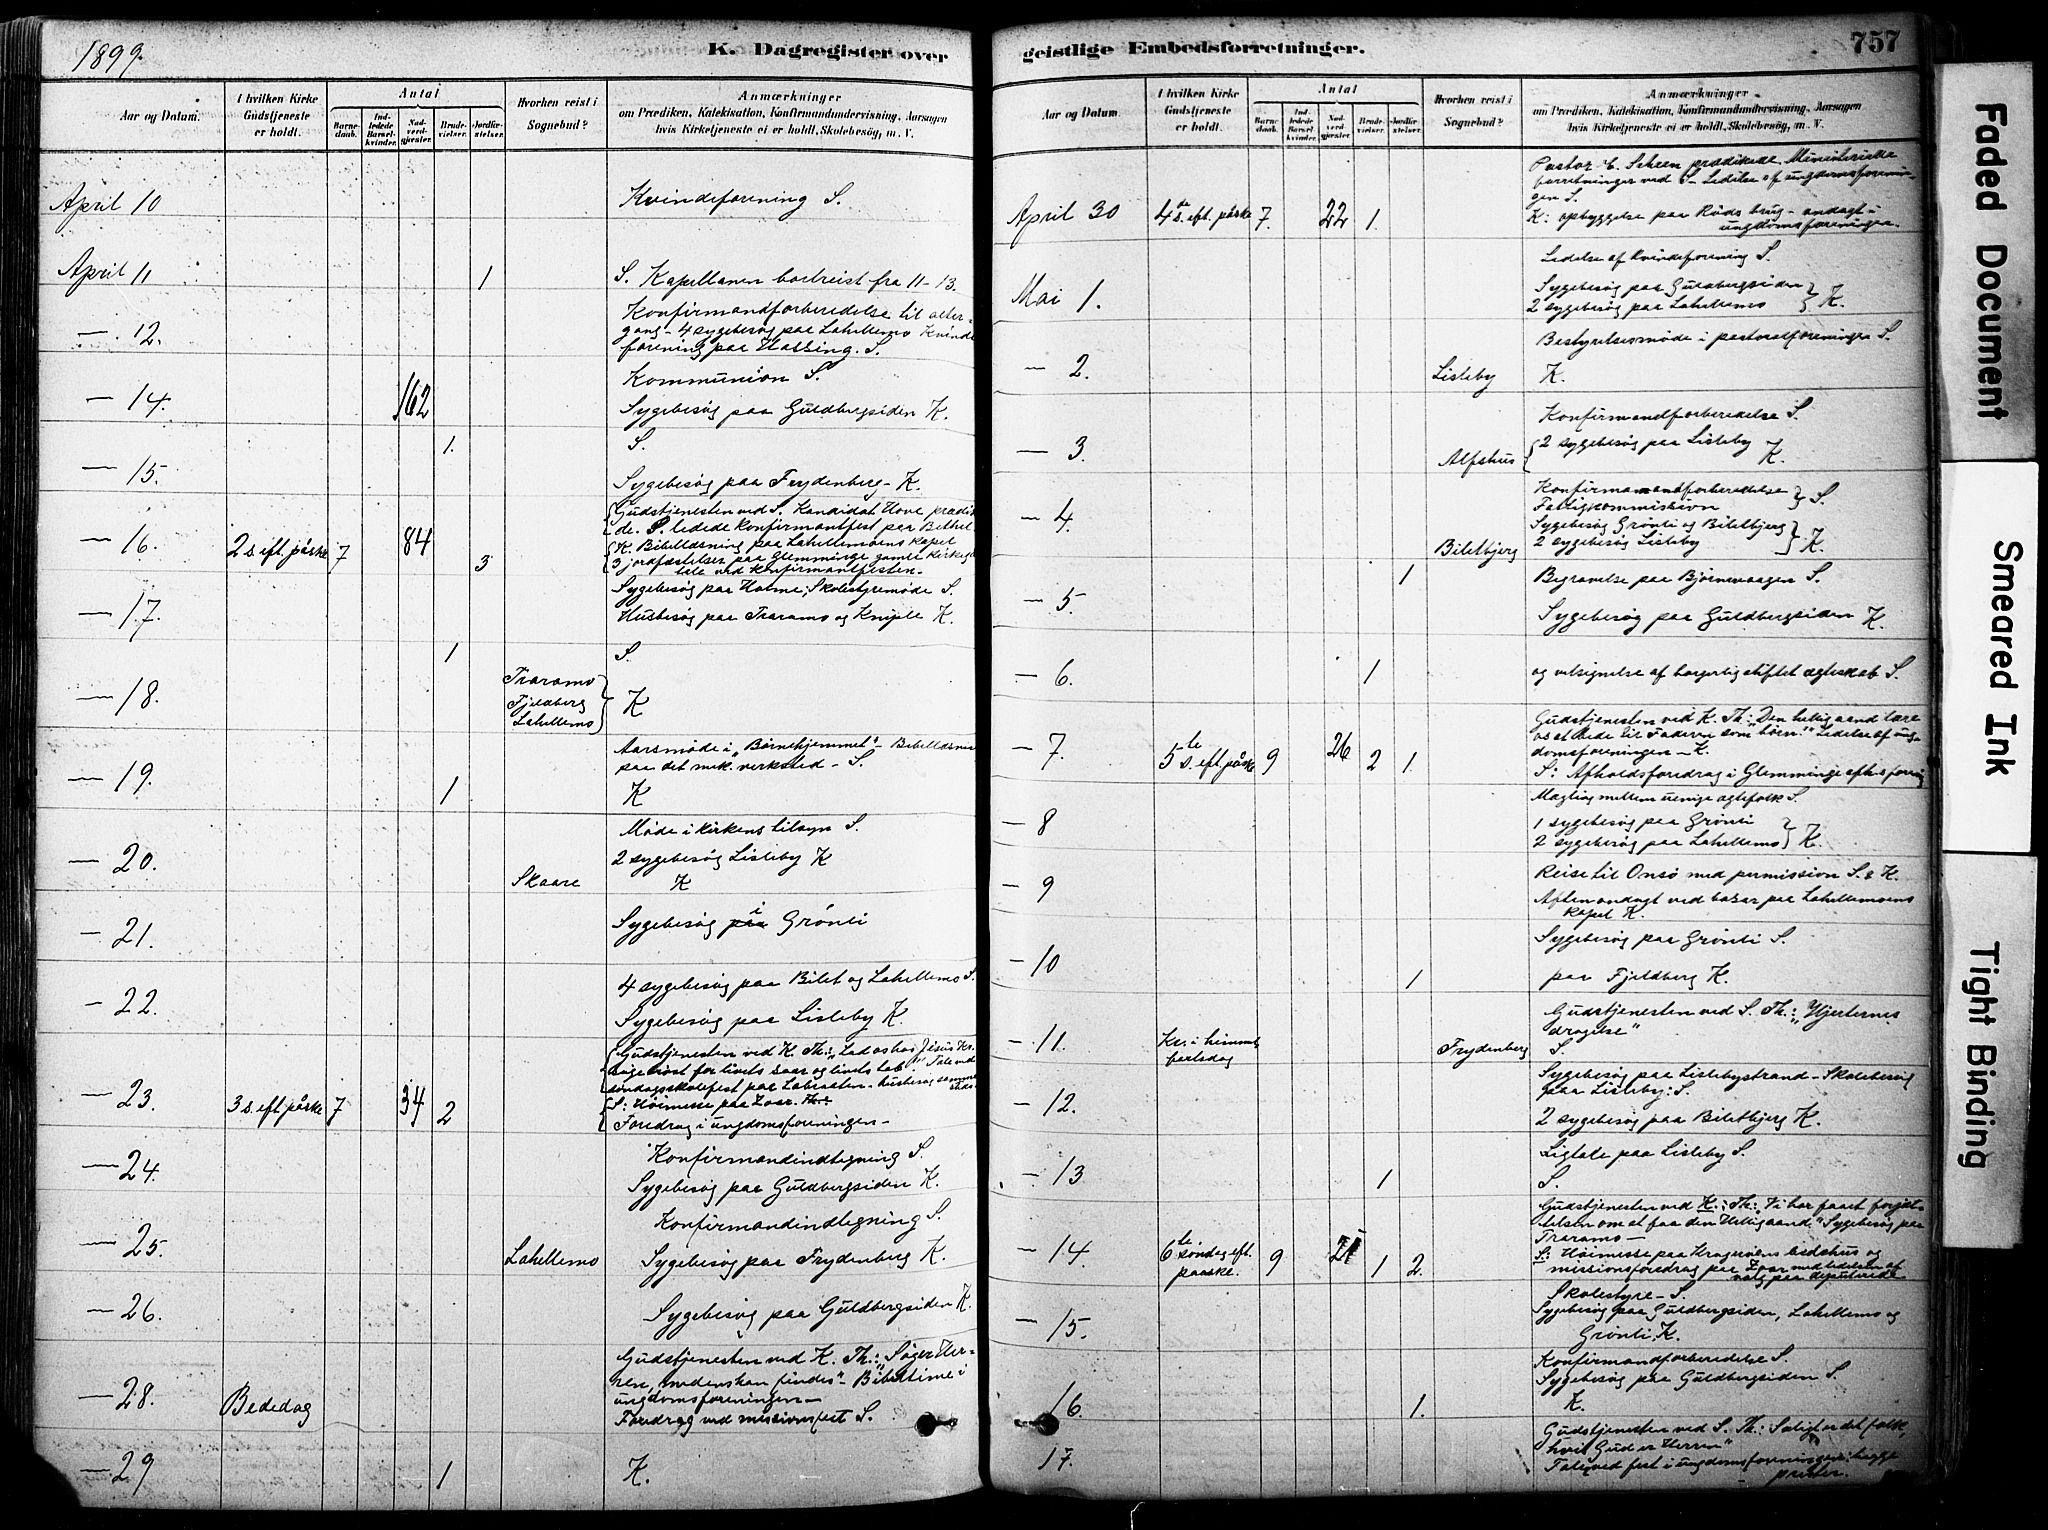 1899.
K. Dagregister over
Aar og Datum.
I hvilken Kirke
Gudstjeneste
er holdt.
Antal
Barne-
daab.
Ind-
ledede
Barsel-
kvinder.
Nad-
verd-
gjester.
Brude-
vielser.
Jordfæ-
stelser.
Hvorhen reist i
Sognebud?
Anmærkninger
om Prædiken, Katekisation, Konfirmandundervisning, Aarsagen
hvis Kirketjeneste ei er holdt, Skolebesøg, m. V.
April 10
Kvindeforening S.
April 11
1
S. Kapellanen bortreist fra 11-13.
— 12.
Konfirmandforberedelse til alter-
gang - 4 sygebesøg paa Lahellemo Kvinde
forening paa Hassing. S.
— 14.
162
Kommunion S.
Sygebesøg paa Guldbergsiden K.
— 15.
1.
S.
Sygebesøg paa Frydenberg - K.
— 16.
2 s. eft. påske
7
84
3
Gudstjenesten ved S. Kandidat Hove prædik
de. S. ledede konfirmantfest paa Bethel
K. Bibellæsning paa Lahellemoens kapel
3 jordfæstelser paa Glemminge gamle kirkeg
tale ved konfirmantfesten.
— 17.
Sygebesøg paa Holme; Skolestyremøde S.
Husbesøg paa Traramo og Kniple K.
— 18.
1
S.
Traramo
Fjeldberg
Lahellemo
K
— 19.
Aarsmøde i "Børnehjemmet" - Bibellæsnin
paa det mek. verksted - S.
1
K
— 20.
Møde i kirkens tilsyn S.
2 sygebesøg Lisleby K
Skaare
K
— 21.
Sygebesøg i Grønli
— 22.
4 sygebesøg paa Bilet og Lahellemo S.
Sygebesøg paa Lisleby K.
— 23.
3 s. eft. påske
7
34
2
Gudstjenesten ved K. Th.: "Lad os hos Jesus Kr.
søge trøst for livets saar og livets tab" Tale ved
søndagsskolefest paa Labraaten - husbesøg samme
S: Høimesse paa Zoar.
Foredrag i ungdomsforeningen -
— 24.
Konfirmandindtegning S.
Sygebesøg paa Guldbergsiden K.
— 25.
Lahellemo
Konfirmandindtegning S.
Sygebesøg paa Frydenberg K.
— 26.
Sygebesøg paa Guldbergsiden K.
— 28.
Bededag
Gudstjenesten ved K. Th.: "Søger Her-
ren, medens han findes" - Bibeltime i
ungdomsforeningen -
Foredrag ved missionsfest S.
— 29
1
K.
geistlige Embedsforretninger.
757
Aar og Datum.
I hvilken Kirke
Gudstjeneste
er holdt.
Antal
Barne-
daab.
Ind-
ledede
Barsel-
kvinder.
Nad-
verd-
gjester.
Brude-
vielser.
Jordfæ-
stelser.
Hvorhen reist i
Sognebud?
Anmærkninger
om Prædiken, Katekisation, Konfirmandundervisning, Aarsagen
hvis Kirketjeneste ei er holdt, Skolebesøg, m. V.
April 30
4de s. eft. påske
7.
22
1.
Pastor C. Scheen prædikede. Ministerielle
forretninger ved S - Ledelse af ungdomsforenin-
gen S.
K: opbyggelse paa Røds brug - andagt i
ungdomsforeningen.
Mai 1.
Ledelse af kvindeforening S.
Sygebesøg paa Guldbergsiden
2 sygebesøg paa Lahellemo K.
— 2.
Bestyrelsesmøde i pastoralforeningen S.
Lisleby
K.
— 3.
Konfirmandforberedelse S.
Alfshus
2 sygebesøg paa Lisleby K.
— 4.
Konfirmandforberedelse
Fattigkommission S.
Biletbjerg
Sygebesøg Grønli og Biletbjerg
2 sygebesøg Lisleby K.
— 5.
1
Begravelse paa Bjørnevaagen S.
Sygebesøg paa Guldbergsiden K.
— 6.
1
og velsignelse af borgerlig stiftet ægteskab S.
— 7.
5te s. eft. påske
9
26
2
1.
Gudstjenesten ved K. Th: "Den hellig aand lære
os at bede til Faderen som børn." Ledelse af ung-
domsforeningen - K.
S: Afholdsforedrag i Glemminge afh.s forening
— 8
Mægling mellem uenige ægtefolk S.
1 sygebesøg paa Grønli
2 sygebesøg paa Lahellemo K.
— 9
Reise til Onsø med permission S. & K.
Aftenandagt ved bazar paa Lahellemoens
kapel K.
— 10
Sygebesøg paa Grønli S.
1
paa Fjeldberg K.
— 11.
Kr. i himmel
fartsdag
Frydenberg
Gudstjenesten ved S. Th.: "Hjerternes
dragelse"
S.
— 12.
Sygebesøg paa Lislebystrand - Skolebesøg
paa Lisleby: S.
2 sygebesøg paa Biletbjerg K.
— 13
Ligtale paa Lisleby S.
1
S.
— 14.
6te søndag eft.
paaske.
9
21
1
2.
Gudstjenesten ved K.: Th: "Vi har faaet forjæt-
telsen om at faa den Helligaand." Sygebesøg paa
Traramo -
S: Høimesse paa Kragerøens bedehus og
missionsforedrag paa Zoar med ledelsen af
valg paa deputerede
— 15.
Skolestyre - S.
Sygebesøg paa Guldbergsiden, Lahellemo og
Grønli. K.
— 16.
Konfirmandforberedelse S.
Sygebesøg paa Guldbergsiden S.
1.
K.
17.
Gudstjenesten ved S. Th.: Saligt er det folk,
hvis Gud er Herren"
Tale ved fest i ungdomsforeningen: begge
prester.
Faded Document
Smeared Ink
Tight Binding